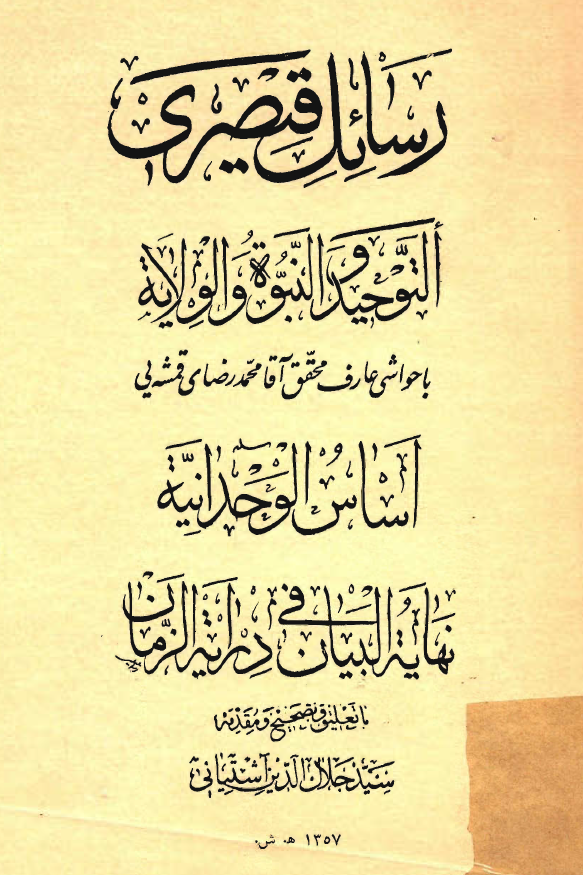 رسائل قیصری
ألتَّوْحِيد وَ النُّبُوَّة وَالْوِلايَة
با حواشی عارف محقّق آقا محمّد رضای قمشه‌یی
اَسَاسُ الْوَحْدانِيَّة
نِهَايَةُ الْبَيَان في دِرايَة الزَّمَان
با تعليق و تصحيح و مقدمه
سَيّد جلال الدّين آشتيانى
١٣٥٧ هـ. ش.